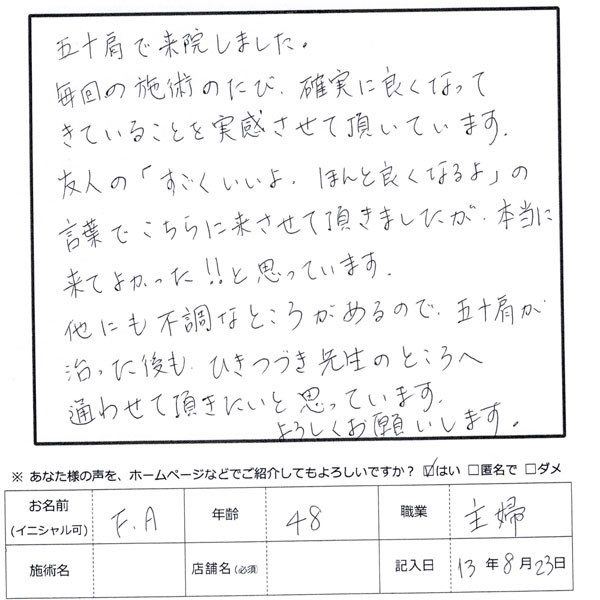 五十肩で来院しました。
毎回の施術のたび、確実に良くなって
きていることを実感させて頂いています。
友人の「すごくいいよ、ほんと良くなるよ」の
言葉でこちらに来させて頂きましたが、本当に
来てよかった!!と思っています。
他にも不調なところがあるので、五十肩が
治った後も、ひきつづき先生のところへ
通わせて頂きたいと思っています。
よろしくお願いします。
※ あなた様の声を、ホームページなどでご紹介してもよろしいですか? ☑はい □匿名で □ダメ
お名前(イニシャル可) F.A 年齢 48 職業 主婦
施術名 店舗名(必須) 記入日 13年8月23日